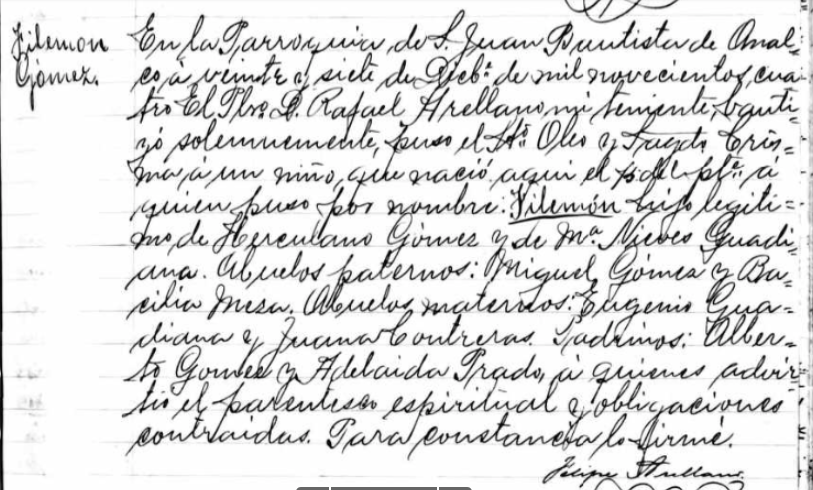 Filemon
Gómez.
En la Parroquia de S. Juan Bautista de Anal-
co, á veinte y siete de Dicbe. de mil novecientos cua-
tro El Pbro. D. Rafael Arellano mi teniente, bauti-
zó solemnemente, puso el Sto. Oleo y Sagdo. Cris=
ma, á un niño, que nació aquí el del pte. á
quien puso por nombre: Filemón hijo legíti=
mo, de Herculano Gómez y de Ma. Nieves Guadi=
ana. Abuelos paternos: Miguel Gómez y Ba=
cilia Mesa. Abuelos maternos: Eugenio Gua=
diana y Juana Contreras. Padrinos: Alber=
to Gomez y Adelaida Prado, á quienes advir=
tió el parentesco espiritual y obligaciones
contraidas. Para constancia lo firmé.
Felipe Arellano